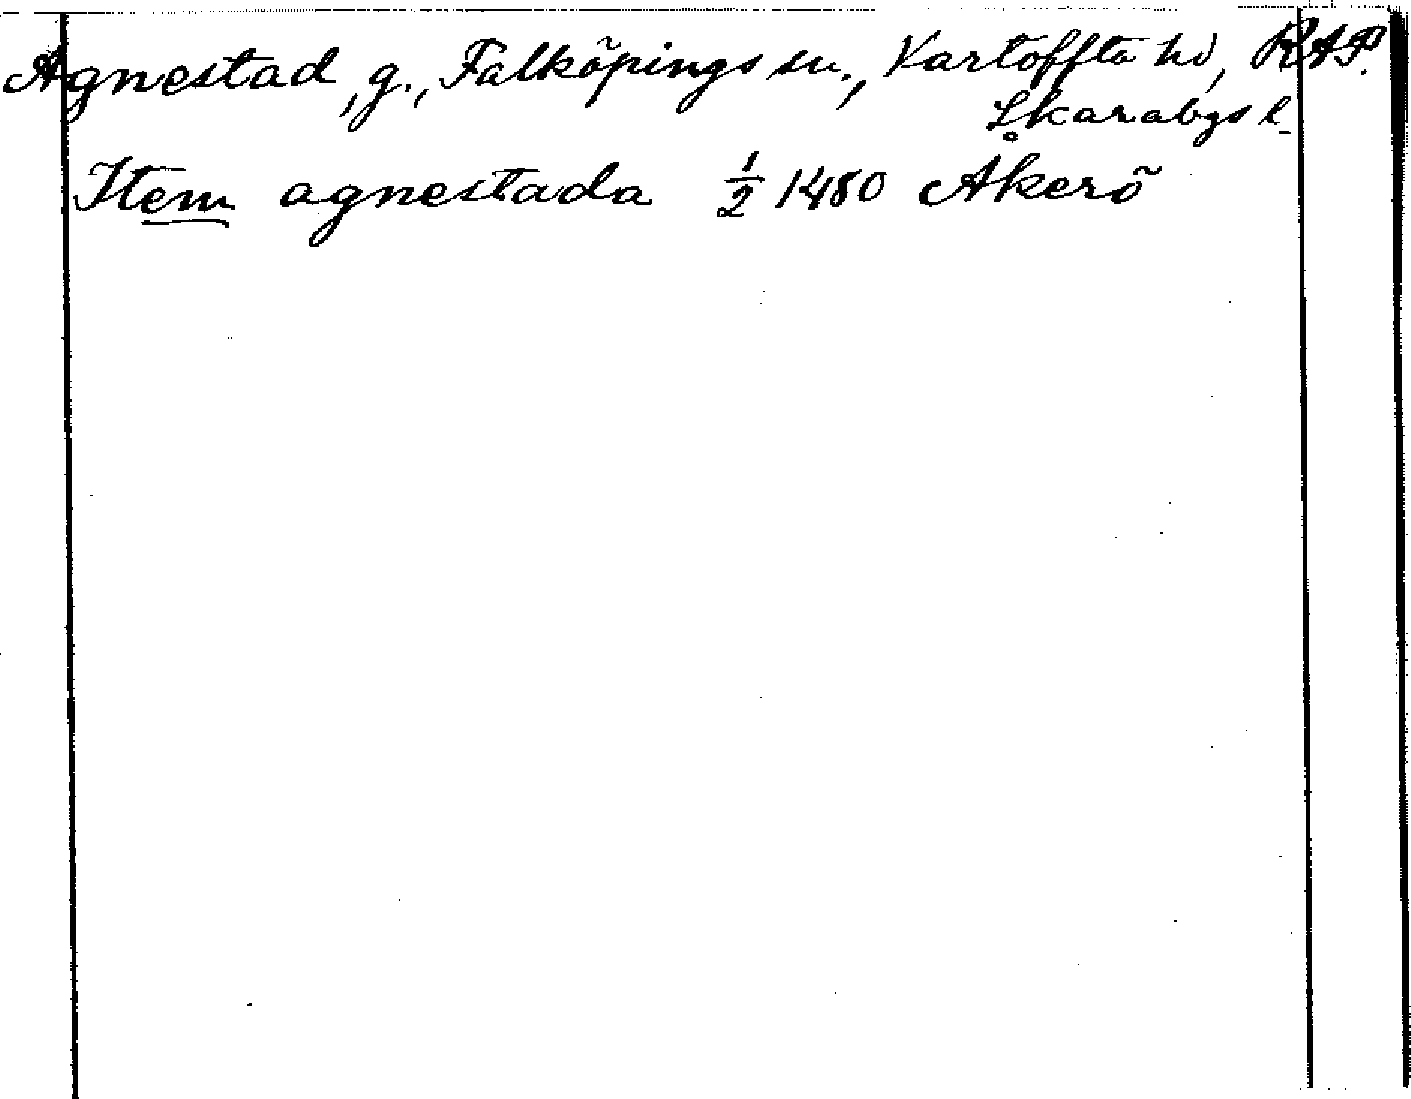 Agnestad, g., Falköpings sn., Vartoffta hd, RAP.
Skarabgs l.
Item agnestada 1/2 1480 Åkerö